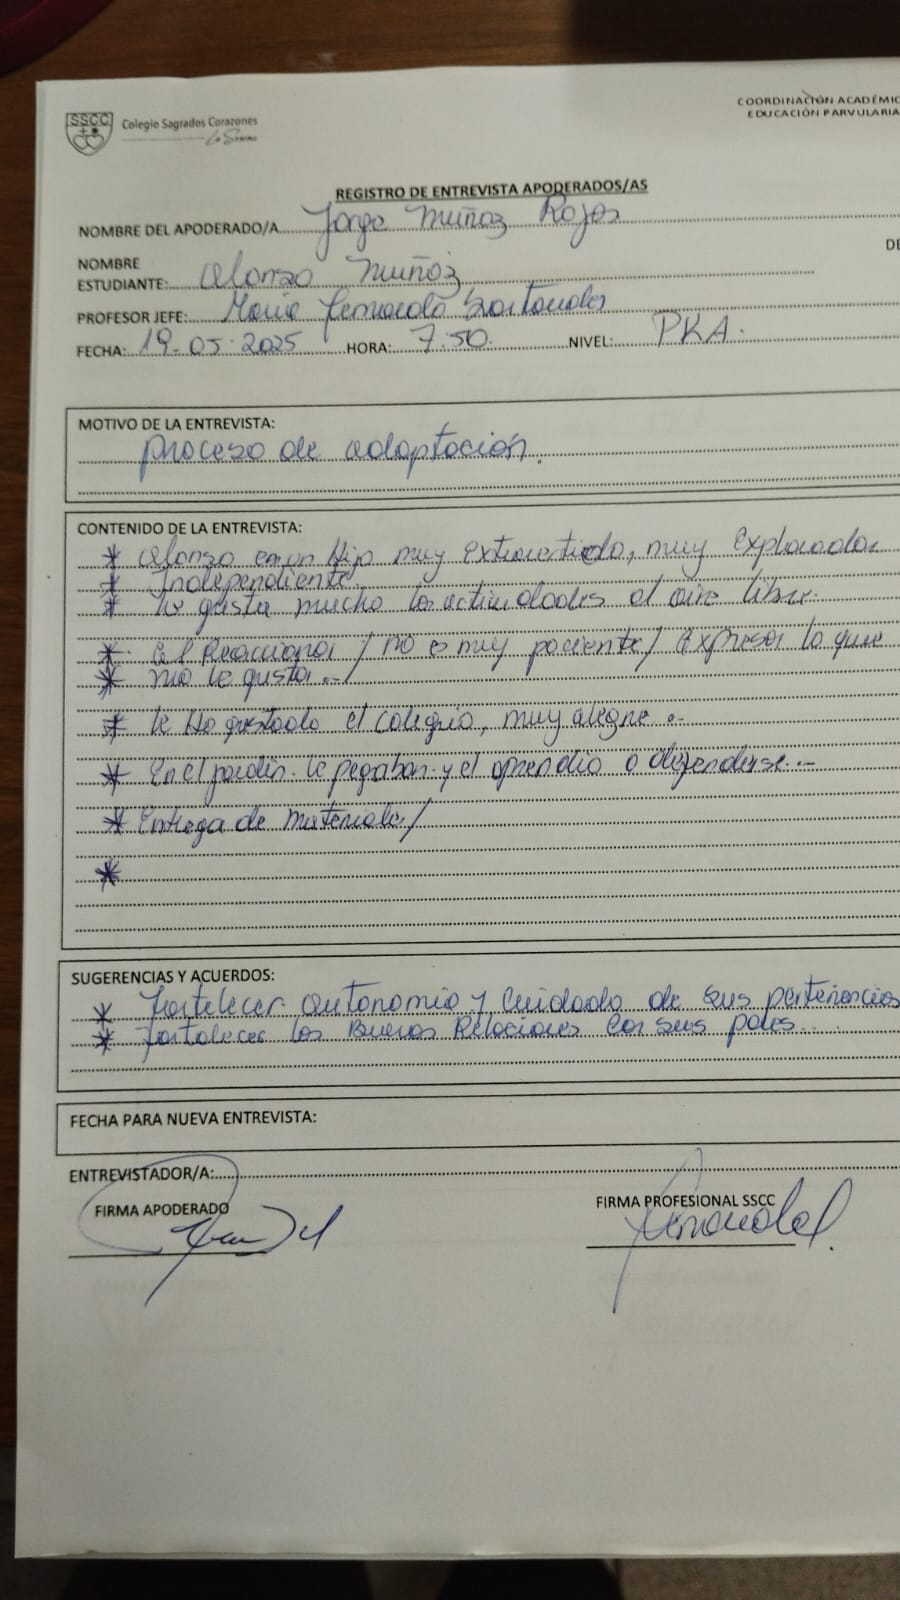 SSCC
Colegio Sagrados Corazones
COORDINACIÓN ACADÉMIC
EDUCACIÓN PARVULARIA
REGISTRO DE ENTREVISTA APODERADOS/AS
NOMBRE DEL APODERADO/A Jorge Muñoz Rojas
DE
NOMBRE
ESTUDIANTE: Alonzo Muñoz
PROFESOR JEFE: Maria Fernanda Santander
FECHA: 19-05-2025 HORA: 7.50. NIVEL: PKA.
MOTIVO DE LA ENTREVISTA:
proceso de adaptación.
CONTENIDO DE LA ENTREVISTA:
* Alonzo es un Hijo muy extrovertido, muy Explorador
* Independiente.
* le gusta mucho las actividades al aire libre.
* al Reaccionar / no es muy paciente / Expresa lo que
* no le gusta.. /
* le Ha gustado el colegio, muy alegre..
* En el jardín le pegaban y el aprendio a defenderse...
* Entrega de materiales /
*
SUGERENCIAS Y ACUERDOS:
* fortelecer autonomia y Cuidado de sus pertenencias
* fortalecer las Buenas Relaciones con sus pates...
FECHA PARA NUEVA ENTREVISTA:
ENTREVISTADOR/A:
FIRMA APODERADO
FIRMA PROFESIONAL SSCC